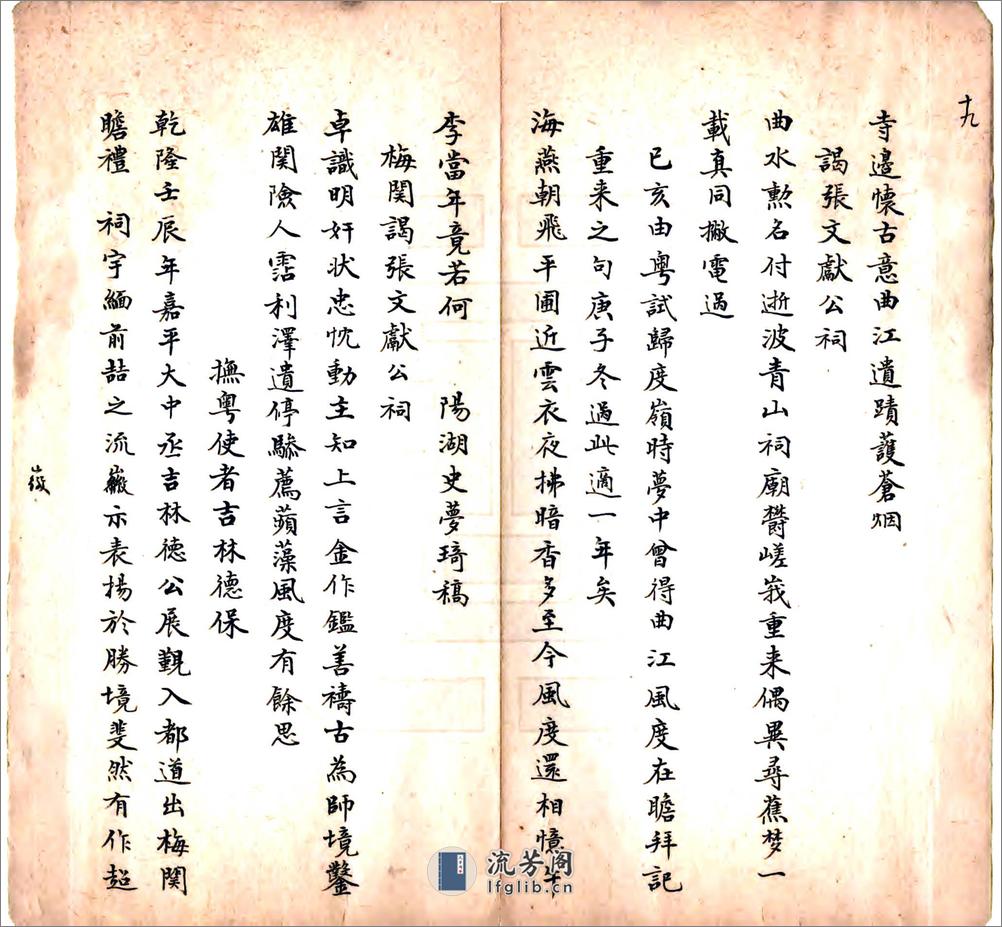 十九
寺邉懷古意曲江遺蹟護蒼烟
謁張文獻公祠
曲水勲名付逝波青山祠廟欝嵯峩重来偶異尋蕉梦一
載真同撇電過
己亥由粵試歸度嶺時夢中曾得曲江風度在瞻拜記
重来之句庚子冬過此適一年矣
海燕朝飛平圃近雲衣夜拂暗香多至今風度還相憶牛
李當年竟若何 陽湖史夢琦稿
梅関謁張文獻公祠
卓識明奸状忠忱動主知上言金作鑑善禱古為師境鑿
雄関險人霑利澤遺停驂薦蘋藻風度有餘思
撫粵使者吉林德保
乾隆壬辰年嘉平大中丞吉林德公展覲入都道出梅関
瞻禮 祠宇緬前喆之流徽示表揚於勝境斐然有作超
流芳阁
lfglib.cn